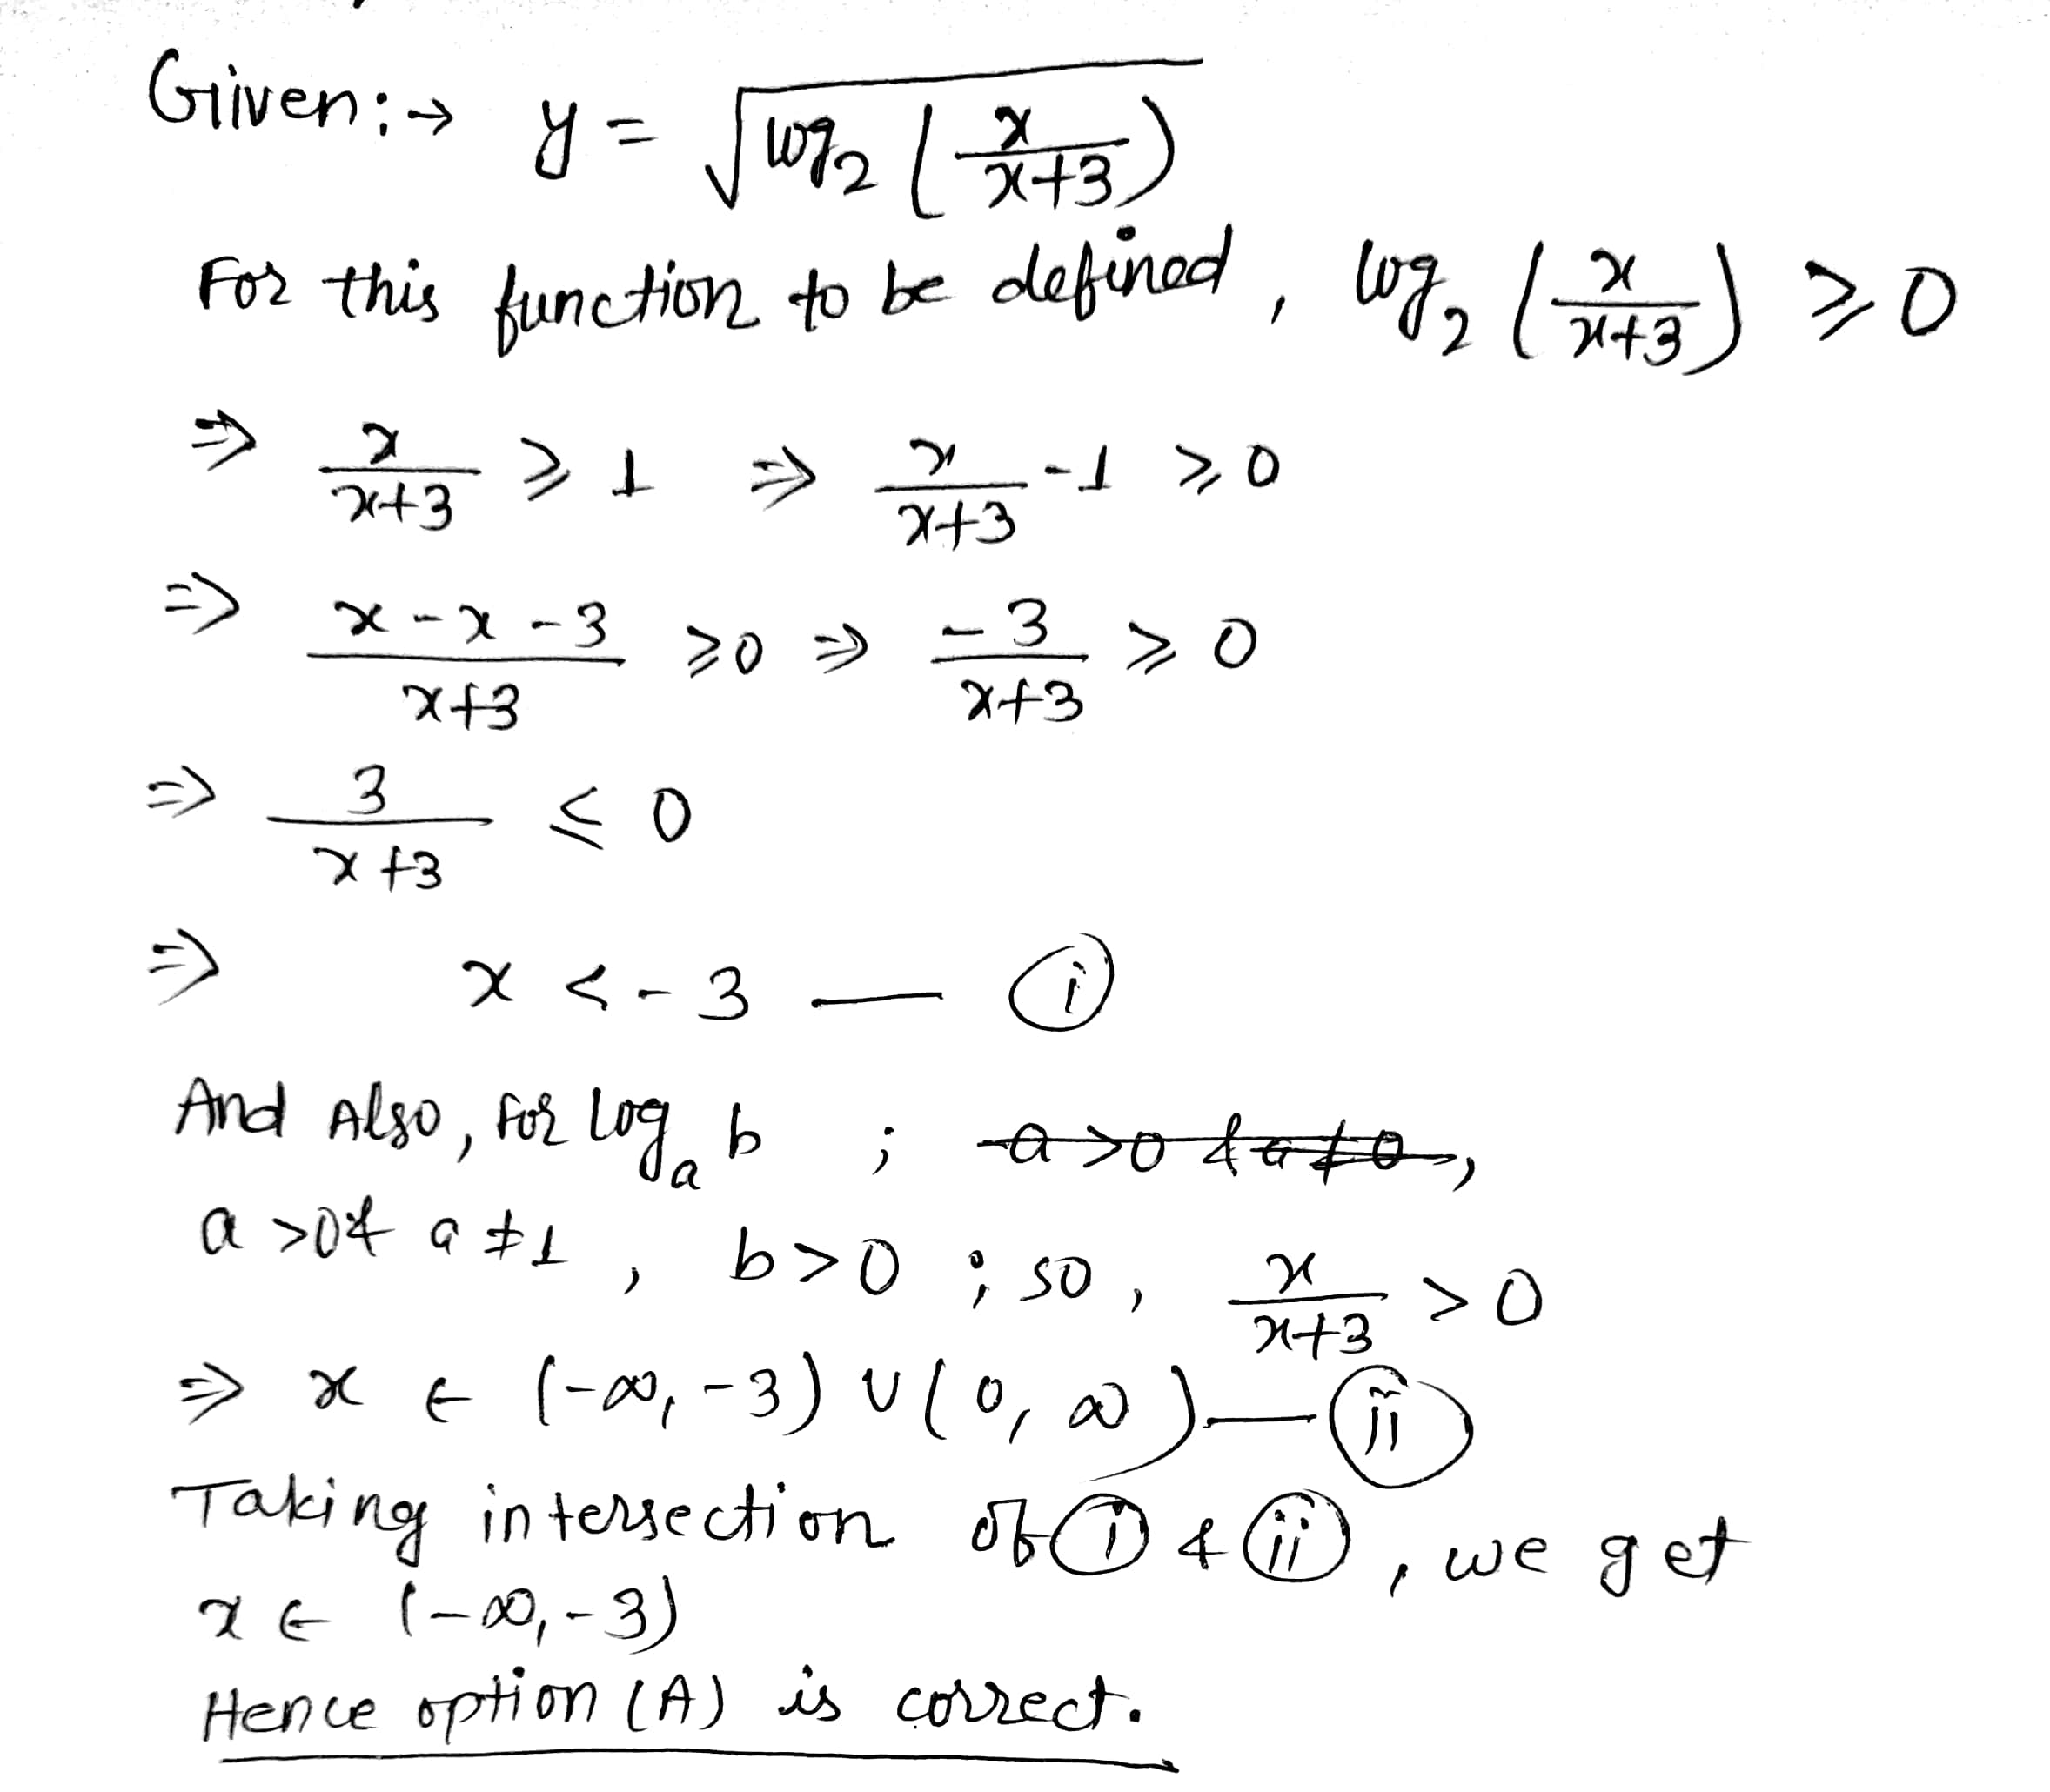 Given:→ y = √(log₂ (x/(x+3)))
For this function to be defined, log₂ (x/(x+3)) ⩾ 0
⇒ x/(x+3) ⩾ 1 ⇒ x/(x+3) -1 ⩾ 0
⇒ (x-x-3)/(x+3) ⩾0 ⇒ -3/(x+3) ⩾ 0
⇒ 3/(x+3) ⩽ 0
⇒ x < -3 — (i)
And Also, for log_a b ; a >0 & a ≠ 0,
a >0 & a ≠ 1, b>0 ; so, x/(x+3) > 0
⇒ x ∈ (-∞, -3) ∪ (0, ∞) — (ii)
Taking intersection of (i) & (ii), we get
x ∈ (-∞, -3)
Hence option (A) is correct.